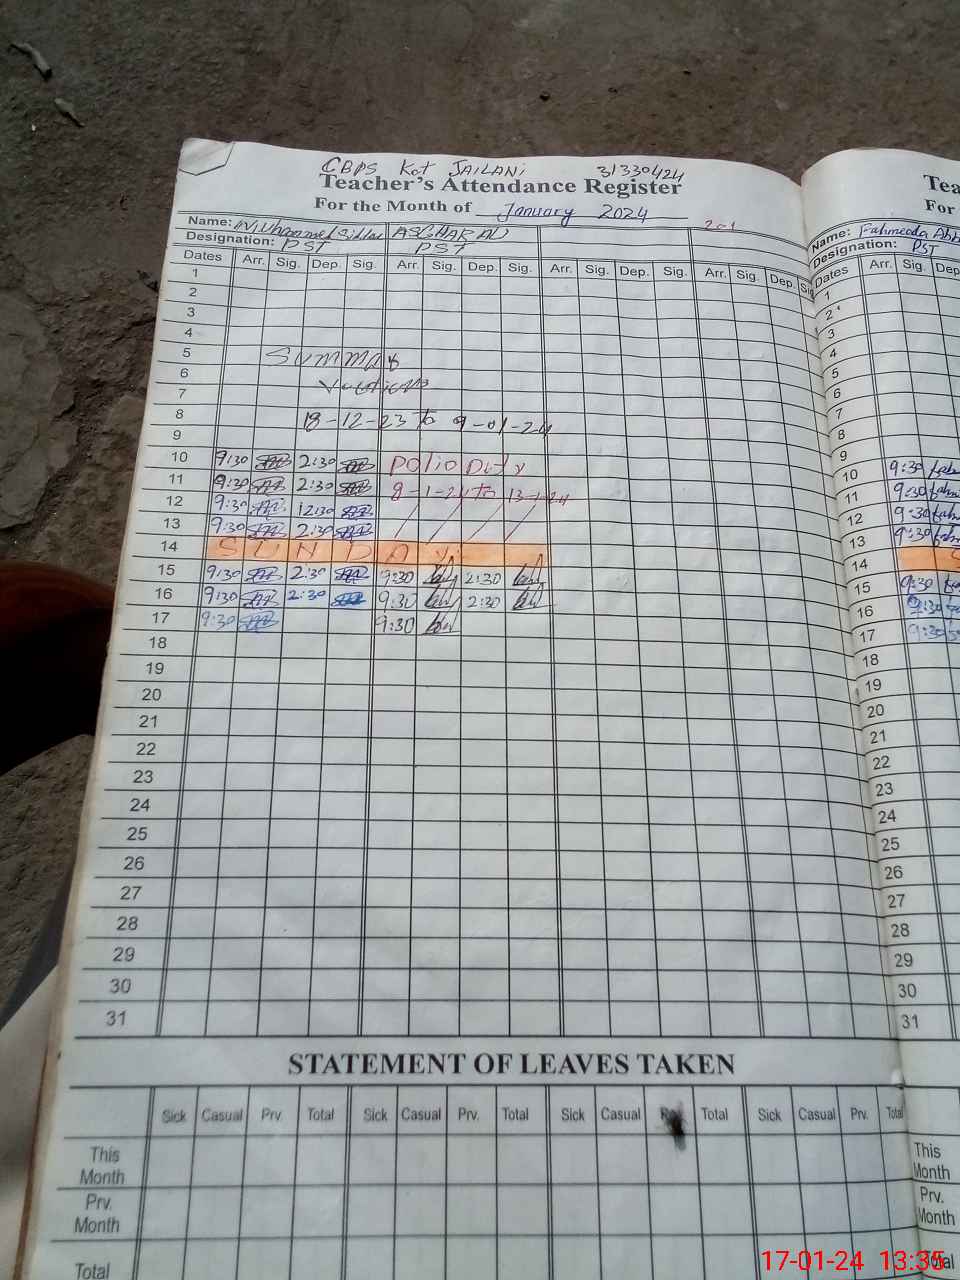 GBPS Kot JAILANI 31330424
Teacher's Attendance Register
For the Month of January 2024
201
Name: ASGHAR ALI
Designation: PST PST
Dates Arr. Sig. Dep. Sig. Arr. Sig. Dep. Sig. Arr. Sig. Dep. Sig. Arr. Sig. Dep. Sig.
1
2
3
4
5 Summar
6
7 Vacations
8 18-12-23 to 9-01-24
9
10 9:30 2:30 Polio Duty
11 9:30 2:30 8-1-24 to 13-1-24
12 9:30 12:30
13 9:30 2:30
14 SUNDAY
15 9:30 2:30 9:30 2:30
16 9:30 2:30 9:30 2:30
17 9:30 9:30
18
19
20
21
22
23
24
25
26
27
28
29
30
31
STATEMENT OF LEAVES TAKEN
Sick Casual Prv. Total Sick Casual Prv. Total Sick Casual Total Sick Casual Prv. Total
This Month
Prv. Month
Total
Tea
For
Name: Fahmeeda Abb
Designation: PST
Dates Arr. Sig. Dep.
1
2
3
4
5
6
7
8
9
10 9:30
11 9:30
12 9:30
13 9:30
14 S
15 9:30
16 9:30
17 9:30
18
19
20
21
22
23
24
25
26
27
28
29
30
31
This Month
Prv. Month
Total
17-01-24 13:35